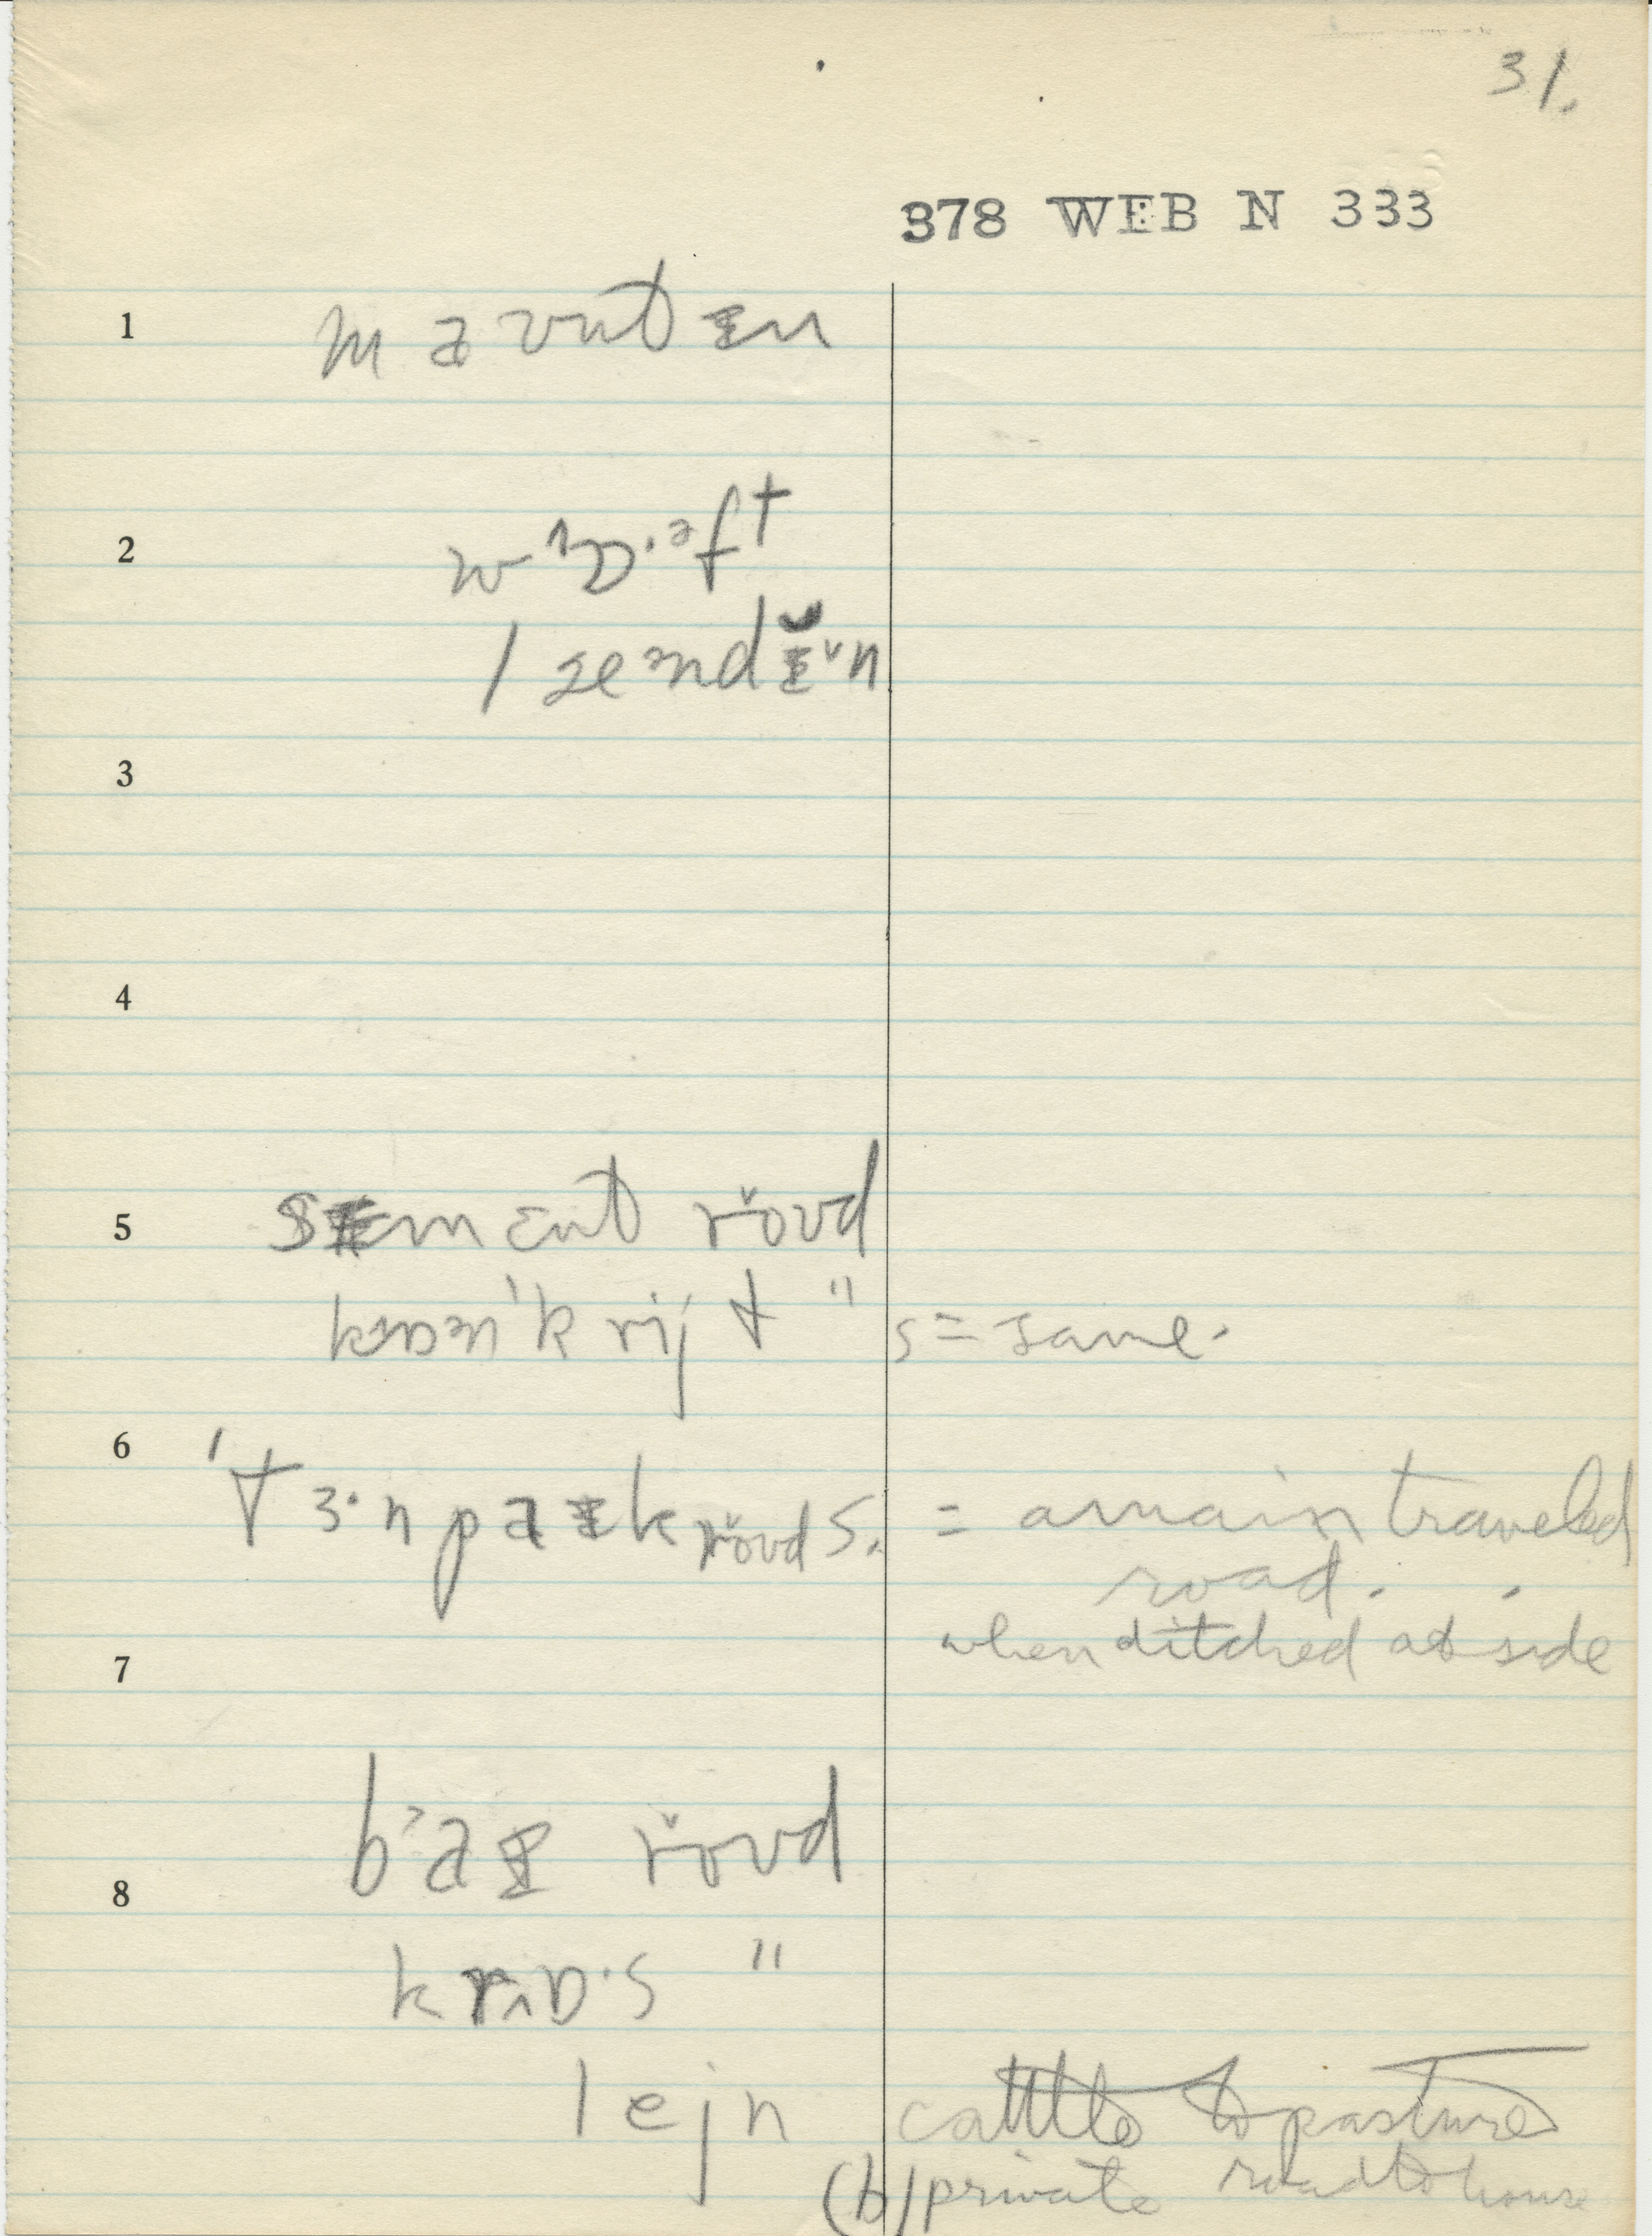 31.
378 WEB N 333
1 maʊntɪn
2
3
4
5 sɪmɛnt rǒʊd
krijt " s = same.
6 'tɜ·npaɪk rǒʊd s. = a main traveled
road.
when ditched at side
7
baɪ rǒʊd
8
krɒ·s "
lejn cattle to pasture
(b) private road to house